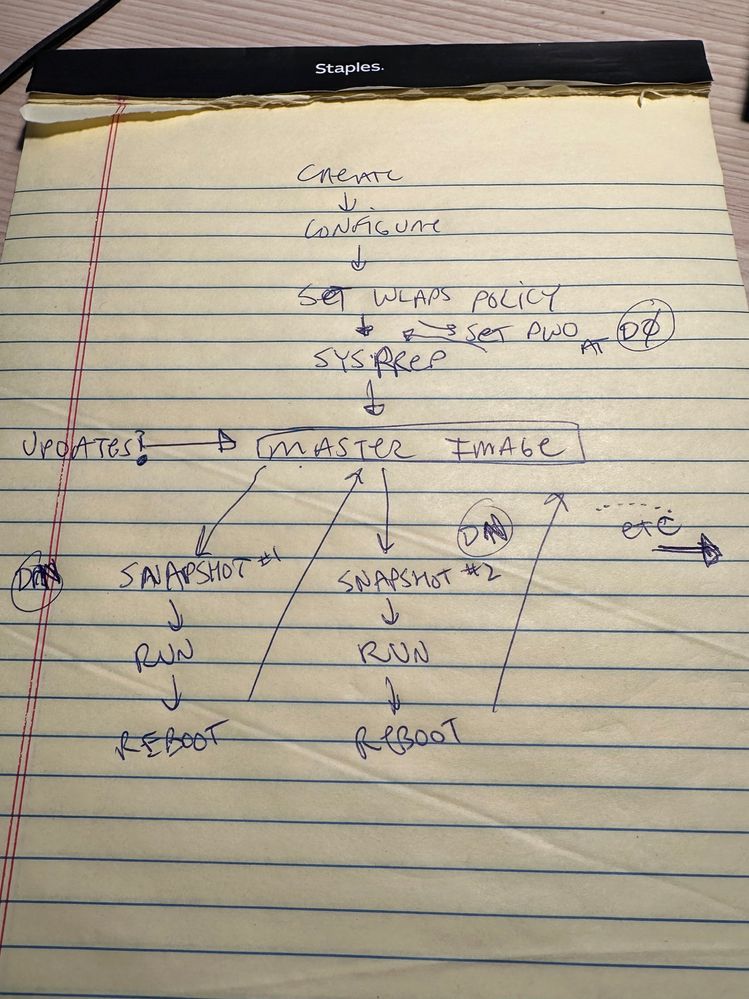 Staples.
CREATE
CONFIGURE
SET WLAPS POLICY
SET PWD AT DØ
SYSPREP
UPDATES! MASTER IMAGE
etc
DN SNAPSHOT #1 SNAPSHOT #2 DN
RUN RUN
REBOOT REBOOT